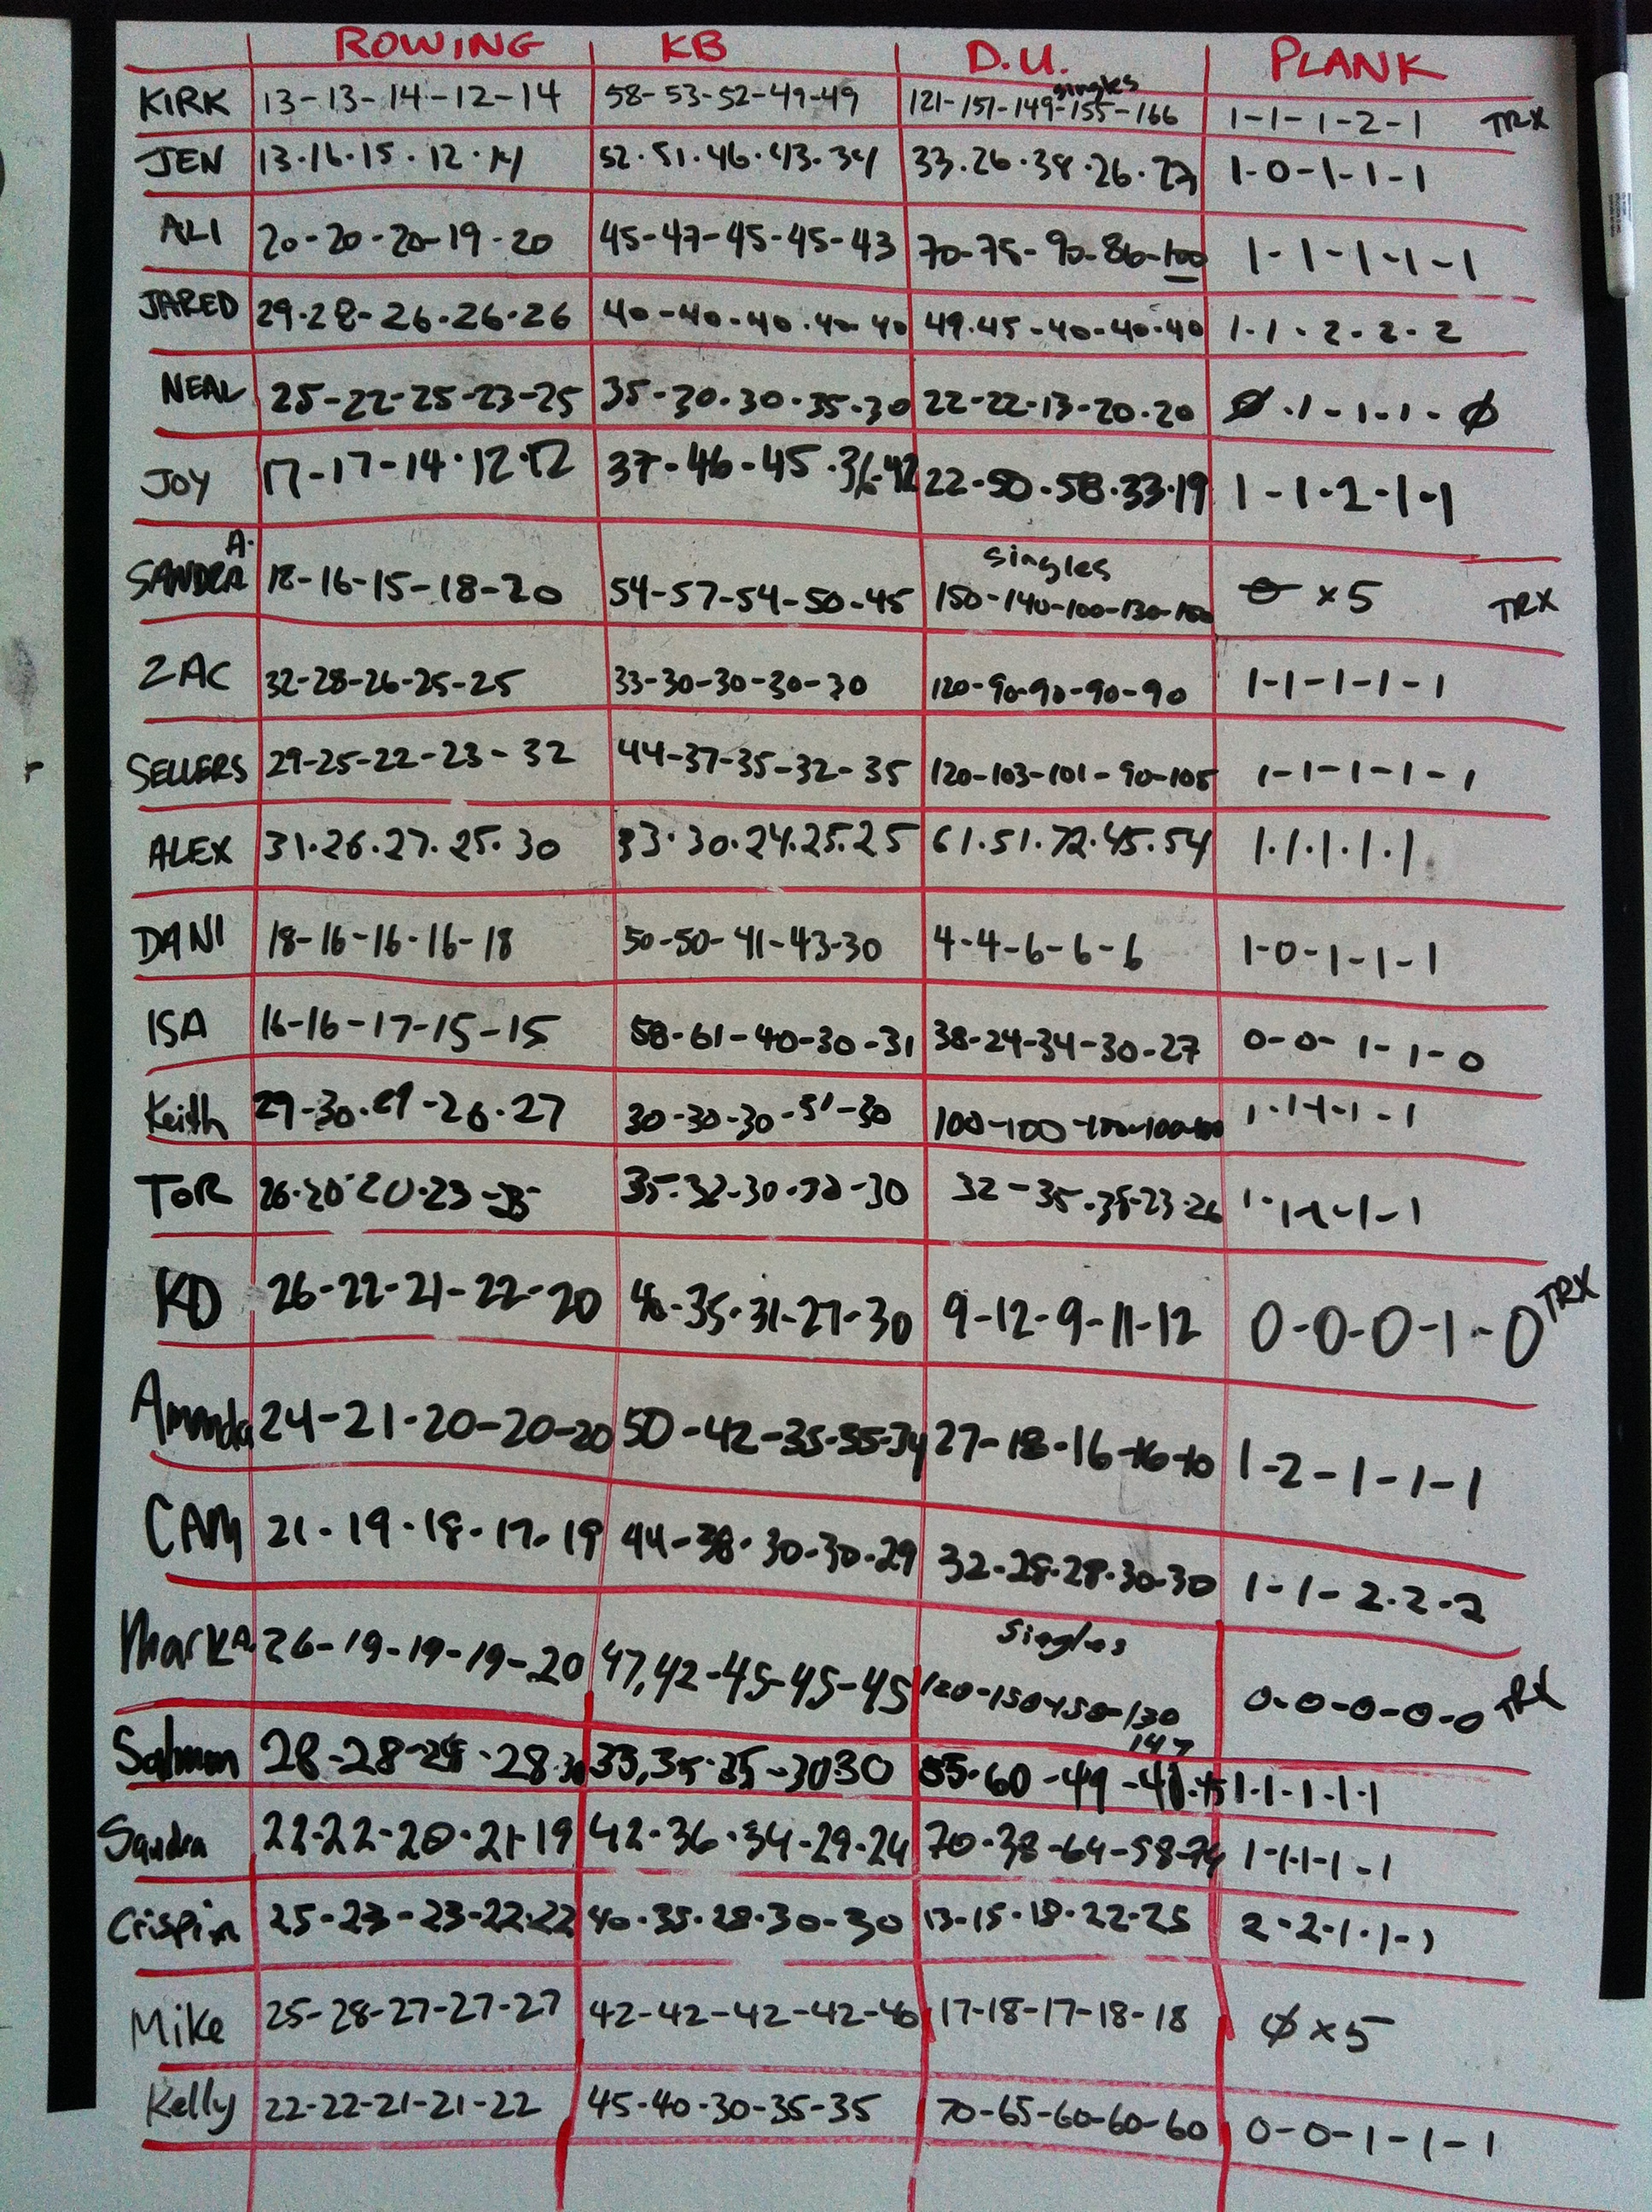 ROWING KB D.U. PLANK
singles
KIRK 13-13-14-12-14 58-53-52-49-49 121-151-149-155-166 1-1-1-2-1 TRX
JEN 13.16.15.12.14 52.51.46.43.34 33.26.38.26.27 1-0-1-1-1
ALI 20-20-20-19-20 45-47-45-45-43 70-75-90-86-100 1-1-1-1-1
JARED 29.28-26.26.26 40-40-40.40-40 49.45-40-40.40 1.1.2.2.2
NEAL 25-22-25-23-25 35-30.30.35.30 22-22-13-20.20 Ø.1-1-1-Ø
JOY 17-17-14.12.12 37-46-45.36.42 22-50.58.33.19 1-1-2-1-1
A. singles
SANDRA 18-16-15-18-20 54-57-54-50-45 150-140-100-130-100 0 x5 TRX
ZAC 32-28-26-25-25 33-30-30-30-30 120-90-90-90-90 1-1-1-1-1
SELLERS 29-25-22-23-32 44-37-35-32-35 120-103-101-90-105 1-1-1-1-1
ALEX 31.26.27.25.30 33.30.24.25.25 61.51.72.45.54 1.1.1.1.1
DANI 18-16-16-16-18 50-50-41-43-30 4-4-6-6-6 1-0-1-1-1
ISA 16-16-17-15-15 58-61-40-30-31 38-24-34-30-27 0-0-1-1-0
Keith 29-30.29-26.27 30-30-30-51-30 100-100-100-100-100 1.1-1-1-1
TOR 26.20.20.23- 35.32-30.30-30 32-35.38-23.26 1-1-1-1-1
KD 26-22-21-22-20 40-35.31-27-30 9-12-9-11-12 0-0-0-1-0 TRX
Amanda 24-21-20-20-20 50-42-35-35-34 27-18-16-16-10 1-2-1-1-1
CAM 21-19.18-17-19 44-38.30-30.29 32-28.28.30-30 1-1-2.2-2
singles
Mark A. 26-19-19-19-20 47,42-45-45-45 120-150-150-130 0-0-0-0-0 TRX
147
Salmon 28-28-28.28.30 33,35.35-30 30 55.60-49-41.45 1-1-1-1-1
Sandra 22-22-20.21-19 42.36.34-29.24 70.38-64-58-74 1-1-1-1-1
Crispin 25-23-23-22.22 40.35.28.30-30 13-15.18.22-25 2-2-1.1-1
Mike 25-28-27-27-27 42-42-42-42-40 17-18-17-18-18 Ø x 5
Kelly 22-22-21-21-22 45-40-30-35-35 70-65-60-60-60 0-0-1-1-1